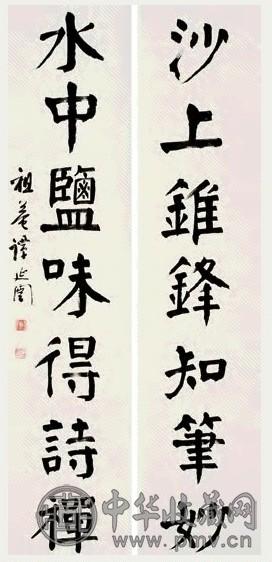 沙上錐鋒知筆妙
水中鹽味得詩禪
祖菴譚延闓
中华收藏网
www.pmv.cn